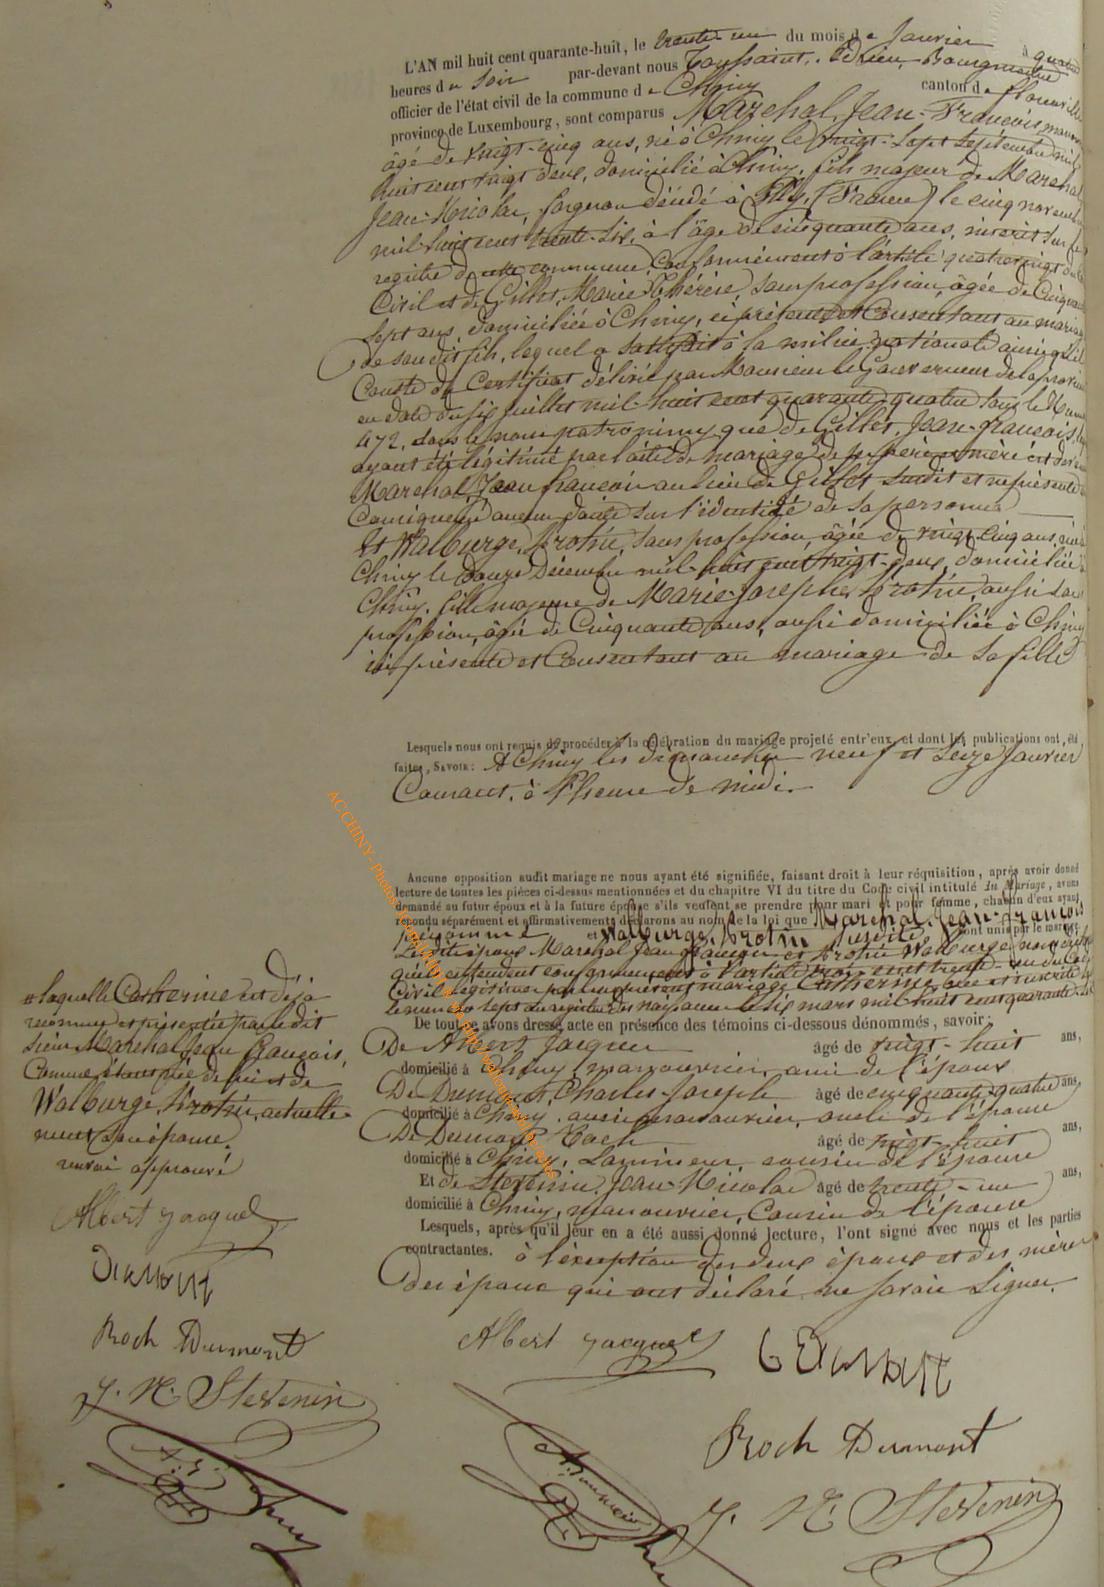 L'AN mil huit cent quarante-huit, le trente-un du mois de Janvier à quatre
heures du Soir par-devant nous Toussaint, Adrien, Bourgmestre
officier de l'état civil de la commune de Chiny canton de florenville
province de Luxembourg, sont comparus Marechal, Jean-François manou
âgé de vingt-cinq ans, né à Chiny le vingt-Sept Septembre mil
huit cent vingt deux, domicilié à Chiny, fils majeur de Marechal
Jean-Nicolas, forgeron décédé à (France) le cinq novembre
mil huit cent trente-six, à l'âge de cinquante ans, inscrit sur le
registre de cette commune, Conformément à l'article quatrevingt du Code
Civil et de Gillet, Marie Thérèse, Sans profession, âgée de Cinquante
Sept ans, domiciliée à Chiny, ci présente et Consentant au mariage
de son dit fils, lequel a satisfait à la milice nationale ainsi qu'il
Conste du Certificat délivré par Monsieur le Gouverneur de la province
en date du six Juillet mil-huit cent quarante-quatre sous le Numéro
472, sous le nom patronimique de Gillet, Jean-francois,
ayant été légitimé par l'acte de mariage de ses père et mère est devenu
Marechal, Jean françois au lieu de Gillet susdit et représente
Conséquent aucun doute sur l'identité de sa personne
Et Walburge, Sans profession, âgée de vingt-Cinq ans, née à
Chiny le Douze Décembre mil-huit cent vingt-deux, domiciliée à
Chiny, fille majeure de Marie-Josephe aussi sans
profession, âgée de Cinquante ans, aussi domiciliée à Chiny
ici présente et Consentant au mariage de sa fille
Lesquels nous ont requis de procéder à la célébration du mariage projeté entr'eux, et dont les publications ont été
faites, SAVOIR: A Chiny les dimanches neuf et Seize Janvier
Courant, à l'heure de midi.
Aucune opposition audit mariage ne nous ayant été signifiée, faisant droit à leur réquisition, après avoir donné
lecture de toutes les pièces ci-dessus mentionnées et du chapitre VI du titre du Code civil intitulé du Mariage, avons
demandé au futur époux et à la future épouse s'ils veulent se prendre pour mari et pour femme, chacun d'eux ayant
répondu séparément et affirmativement déclarons au nom de la loi que Marechal, Jean-françois
prénommé et Walburge, susdite sont unis par le mariage.
Lesdits époux Marechal Jean françois et Walburge
qu'ils entendent conformément à l'article trois-cent trente-un du Code
Civil légitimer par mariage Catherine, née et inscrite
le numéro sept au registre des naissances le six mars mil huit cent quarante
De tout ce avons dressé acte en présence des témoins ci-dessous dénommés, savoir:
De Albert Jacques âgé de vingt-huit ans,
domicilié à Chiny, manouvrier, ami de l'époux
De Dumont, Charles-Joseph âgé de cinquante-quatre ans
domicilié à Chiny, aussi manouvrier, oncle de l'épouse
De Dumont Roch âgé de vingt-huit ans,
domicilié à Chiny, Lamineur, cousin de l'épouse
Et de Stevenin Jean-Nicolas âgé de trente-un ans,
domicilié à Chiny, manouvrier, Cousin de l'épouse
Lesquels, après qu'il leur en a été aussi donné lecture, l'ont signé avec nous et les parties
contractantes. à l'exception des deux époux et des mères
des époux qui ont déclaré ne savoir Signer.
Albert Jacques
C Dumont
Roch Dumont
J. N. Stevenin
laquelle Catherine est déjà
reconnue et présentée par le dit
Sieur Marechal Jean François,
Comme étant née de lui et de
Walburge, actuelle-
ment son épouse.
renvoi approuvé
Albert Jacques
Dumont
Roch Dumont
J. N. Stevenin